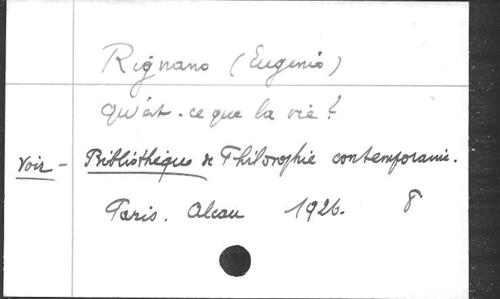 Rignano (Eugenio)
Qu'est-ce que la vie?
Voir - Bibliothèque de Philosophie contemporaine.
Paris. Alcan 1926. 8°